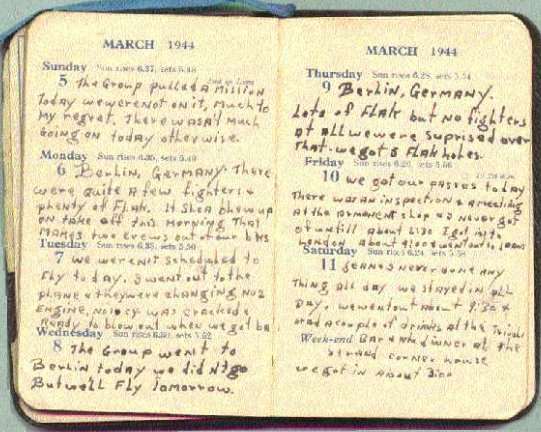 MARCH 1944
Sunday Sun rises 6.37, sets 5.48
5 The Group pulled a Mission
Today we were not on it, Much to
My regret. There wasn't Much
Going on today otherwise.
Monday Sun rises 6.35, sets 5.49
6 Berlin, Germany. There
were quite a few fighters &
plenty of Flak. Lt Shea blew up
on take off this morning. That
Makes two crews out of our
Tuesday Sun rises 6.33, sets 5.50
7 we weren't scheduled to
Fly today. I went out to the
plane & they were changing No 2
Engine, was cracked &
Ready to blow out when we got ba
Wednesday Sun rises 6.30, sets 5.52
8 The Group went to
Berlin today we didn't go
But will Fly Tomorrow.
MARCH 1944
Thursday Sun rises 6.28, sets 5.54
9 Berlin, Germany.
Lots of Flak but no fighters
at all we were suprised over
That. we got 8 Flak holes.
Friday Sun rises 6.26, sets 5.56
10 we got our passes today
There was an inspection & a meeting
at the armament shop so I never got
off untill about 1130 I got into
London about 4:00 & went to Jeans
Saturday Sun rises 6.24, sets 5.58
11 Jean & I never done any
Thing all day we stayed in all
Day. we went out about 9:30 &
had a couple of drinks at the
Week-end Bar and dinner at the
Strand corner house
we got in about 3:00